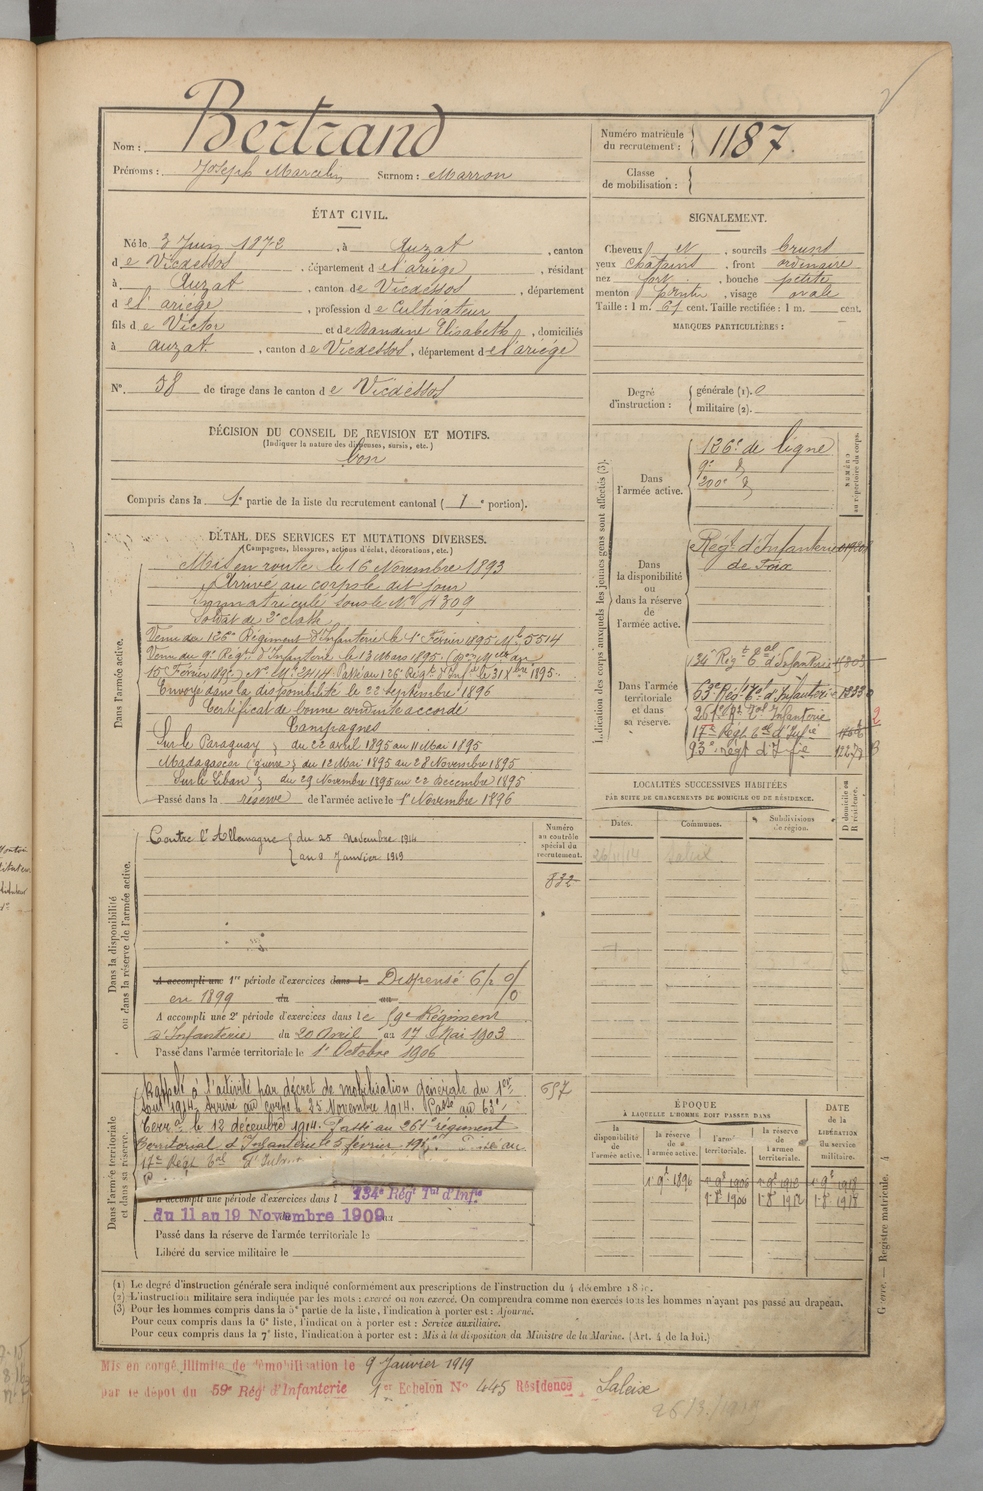 Nom : Bertrand
Prénoms : Joseph Marcelin Surnom : Marron
Numéro matricule du recrutement : 1187.
Classe de mobilisation :
ÉTAT CIVIL.
Né le 3 Juin 1872, à Auzat, canton
de Vicdessos, département de l'ariège, résidant
à Auzat, canton de Vicdessos, département
de l'ariège, profession de Cultivateur
fils de Victor et de Elisabeth, domiciliés
à auzat, canton de Vicdessos, département de l'ariège
N° 58 de tirage dans le canton de Vicdessos
SIGNALEMENT.
Cheveux et, sourcils bruns
yeux châtains, front ordinaire
nez fort, bouche petite
menton pointu, visage ovale
Taille : 1 m. 67 cent. Taille rectifiée : 1 m. cent.
MARQUES PARTICULIÈRES :
Degré d'instruction : générale (1).
militaire (2).
DÉCISION DU CONSEIL DE REVISION ET MOTIFS.
(Indiquer la nature des dispenses, sursis, etc.)
bon
Compris dans la 1e partie de la liste du recrutement cantonal (1e portion).
DÉTAIL DES SERVICES ET MUTATIONS DIVERSES.
(Campagnes, blessures, actions d'éclat, décorations, etc.)
Dans l'armée active.
Mis en route le 16 Novembre 1893
Arrivé au corps le dit jour
Immatriculé sous le N° 4309
Soldat de 2e classe
Venu du 126e Régiment d'Infanterie le 1er Février 1895 Mle 5514
Venu du 9e Régt d'Infanterie le 13 Mars 1895
15 Février 1895) N° Mle 2414 Passé au 126 Régt d'Infie le 31 Xbre 1895.
Envoyé dans la disponibilité le 22 septembre 1896
Certificat de bonne conduite accordé
Campagnes
Sur le Paraguay } du 22 avril 1895 au 11 Mai 1895
Madagascar (guerre) du 12 Mai 1895 au 28 Novembre 1895
Sur le Liban } du 29 Novembre 1895 au 22 Decembre 1895
Passé dans la réserve de l'armée active le 1er Novembre 1896
Indication des corps auxquels les jeunes gens sont affectés (3).
NUMÉRO au répertoire du corps.
Dans l'armée active.
126e de ligne
9e d
200e d
Dans la disponibilité ou dans la réserve de l'armée active.
Régt d'Infanterie
de Foix
Dans l'armée territoriale et dans sa réserve.
134 Régt Tal d'Infanterie
63e Régt Tal d'Infanterie
261e Rt Tal Infanterie
17e Régt Tal d'Infie
93e régt d'Infie
LOCALITÉS SUCCESSIVES HABITÉES
PAR SUITE DE CHANGEMENTS DE DOMICILE OU DE RÉSIDENCE.
Dates. Communes. Subdivisions de région. D domicile ou R résidence.
Saleix
Dans la disponibilité ou dans la réserve de l'armée active.
Numéro au contrôle spécial du recrutement.
Contre l'Allemagne { du 25 Novembre 1914
{ au 8 Janvier 1919
832
A accompli une 1re période d'exercices dans l Dispensé 6/2 0/0
en 1899 du au
A accompli une 2e période d'exercices dans le 59e Régiment
d'Infanterie du 20 Avril au 17 Mai 1903
Passé dans l'armée territoriale le 1er Octobre 1906
Dans l'armée territoriale et dans sa réserve.
Rappelé à l'activité par décret de mobilisation générale du 1er
Aout 1914. Arrivé au corps le 25 Novembre 1914. Passé au 63e
Terral le 12 décembre 1914. Passé au 261e régiment
territorial d'Infanterie le 5 février Passé au
17e Régt Tal d'Infant
657
A accompli une période d'exercices dans l 134e Régt Tal d'Infie
du 11 au 19 Novembre 1909
Passé dans la réserve de l'armée territoriale le
Libéré du service militaire le
ÉPOQUE
À LAQUELLE L'HOMME DOIT PASSER DANS
DATE de la LIBÉRATION du service militaire.
la disponibilité de l'armée active. la réserve de l'armée active. l'armée territoriale. la réserve de l'armée territoriale.
1er 9e 1896 1er 9e 1906 1er 9e 1912 1er 9e 1918
1er 8e 1906 1er 8e 1912 1er 8e 1918
(1) Le degré d'instruction générale sera indiqué conformément aux prescriptions de l'instruction du 4 décembre
(2) L'instruction militaire sera indiquée par les mots : exercé ou non exercé. On comprendra comme non exercés tous les hommes n'ayant pas passé au drapeau.
(3) Pour les hommes compris dans la 5e partie de la liste, l'indication à porter est : Ajourné.
Pour ceux compris dans la 6e liste, l'indication à porter est : Service auxiliaire.
Pour ceux compris dans la 7e liste, l'indication à porter est : Mis à la disposition du Ministre de la Marine. (Art. 4 de la loi.)
Guerre. — Registre matricule. 4
Mis en congé illimité de démobilisation le 9 Janvier 1919
par le dépot du 59e Régt d'Infanterie 1er Echelon N° 445 Résidence Saleix